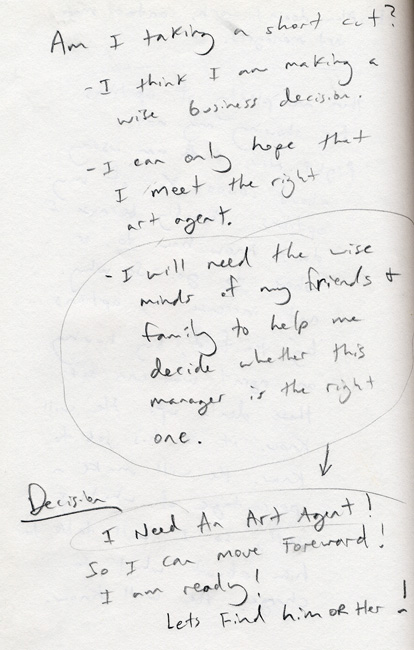 Am I taking a short cut?
- I think I am making a
wise business decision.
- I can only hope that
I meet the right
art agent.
- I will need the wise
minds of my friends +
family to help me
decide whether this
manager is the right
one.
Decision
I Need An Art Agent!
So I can move Foreward!
I am ready!
Lets Find him OR Her!